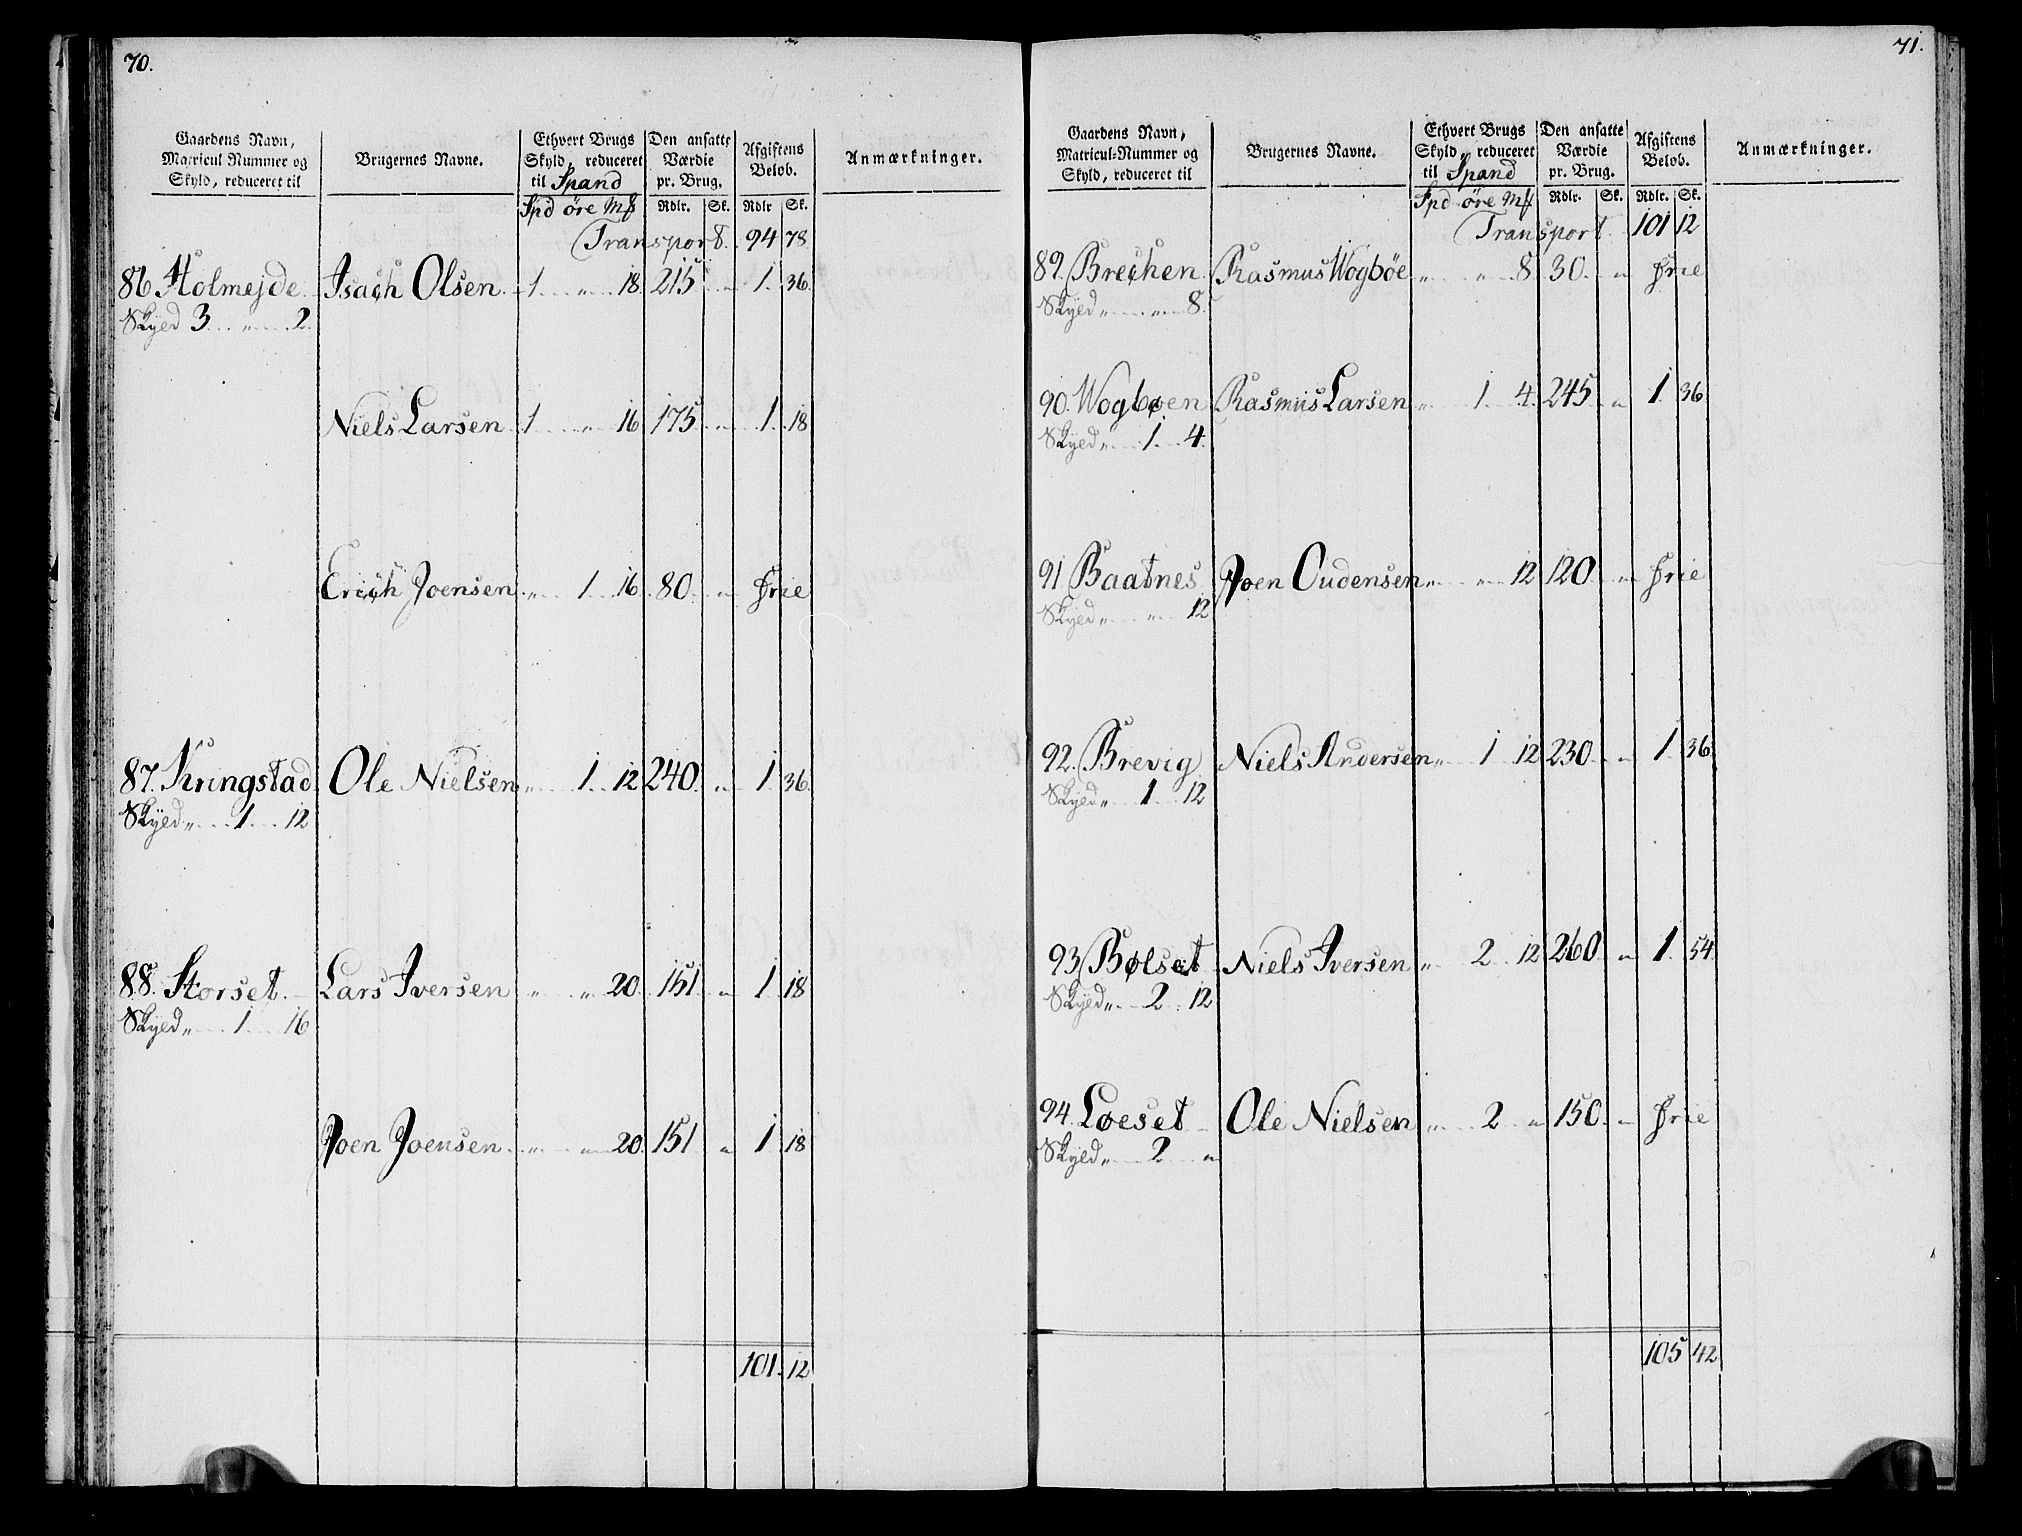 70.
Gaardens Navn, Matricul Nummer og Skyld, reduceret til | Brugernes Navne. | Ethvert Brugs Skyld, reduceret til Spand | Den ansatte Værdie pr. Brug. | Afgiftens Beløb. | Anmærkninger.
Spd øre Mk | Rdlr. | Sk. | Rdlr | Sk.
Transport. 94 78
86 Holmejde Isach Olsen 1 " 18 215 " 1 36
Skyld 3 " 2
Niels Larsen 1 " 16 175 " 1 18
Erich Joensen " 1 16 80 " Frie
87. Kringstad Ole Nielsen " 1 12 240 " 1 36
Skyld " 1 12
88. Storset Lars Iversen " " 20 151 " 1 18
Skyld " 1 16
Joen Joensen " " 20 151 " 1 18
101 12
71.
Gaardens Navn, Matricul-Nummer og Skyld, reduceret til | Brugernes Navne. | Ethvert Brugs Skyld, reduceret til Spand | Den ansatte Værdie pr. Brug. | Afgiftens Beløb. | Anmærkninger.
Spd øre Mk | Rdlr. | Sk. | Rdlr. | Sk.
Transport 101 12
89. Brechen Rasmus Wogbøe " " 8 30 " Frie
Skyld " " 8
90. Wogbøen Rasmus Larsen " 1 4 245 " 1 36
Skyld " 1 4
91 Baatnes Joen Oudensen " " 12 120 " Frie
Skyld " " 12
92. Brevig Niels Andersen " 1 12 230 " 1 36
Skyld " 1 12
93 Bølset Niels Iversen " 2 12 260 " 1 54
Skyld " 2 12
94. Løeset Ole Nielsen " 2 " 150 " Frie
Skyld " 2 "
105 42